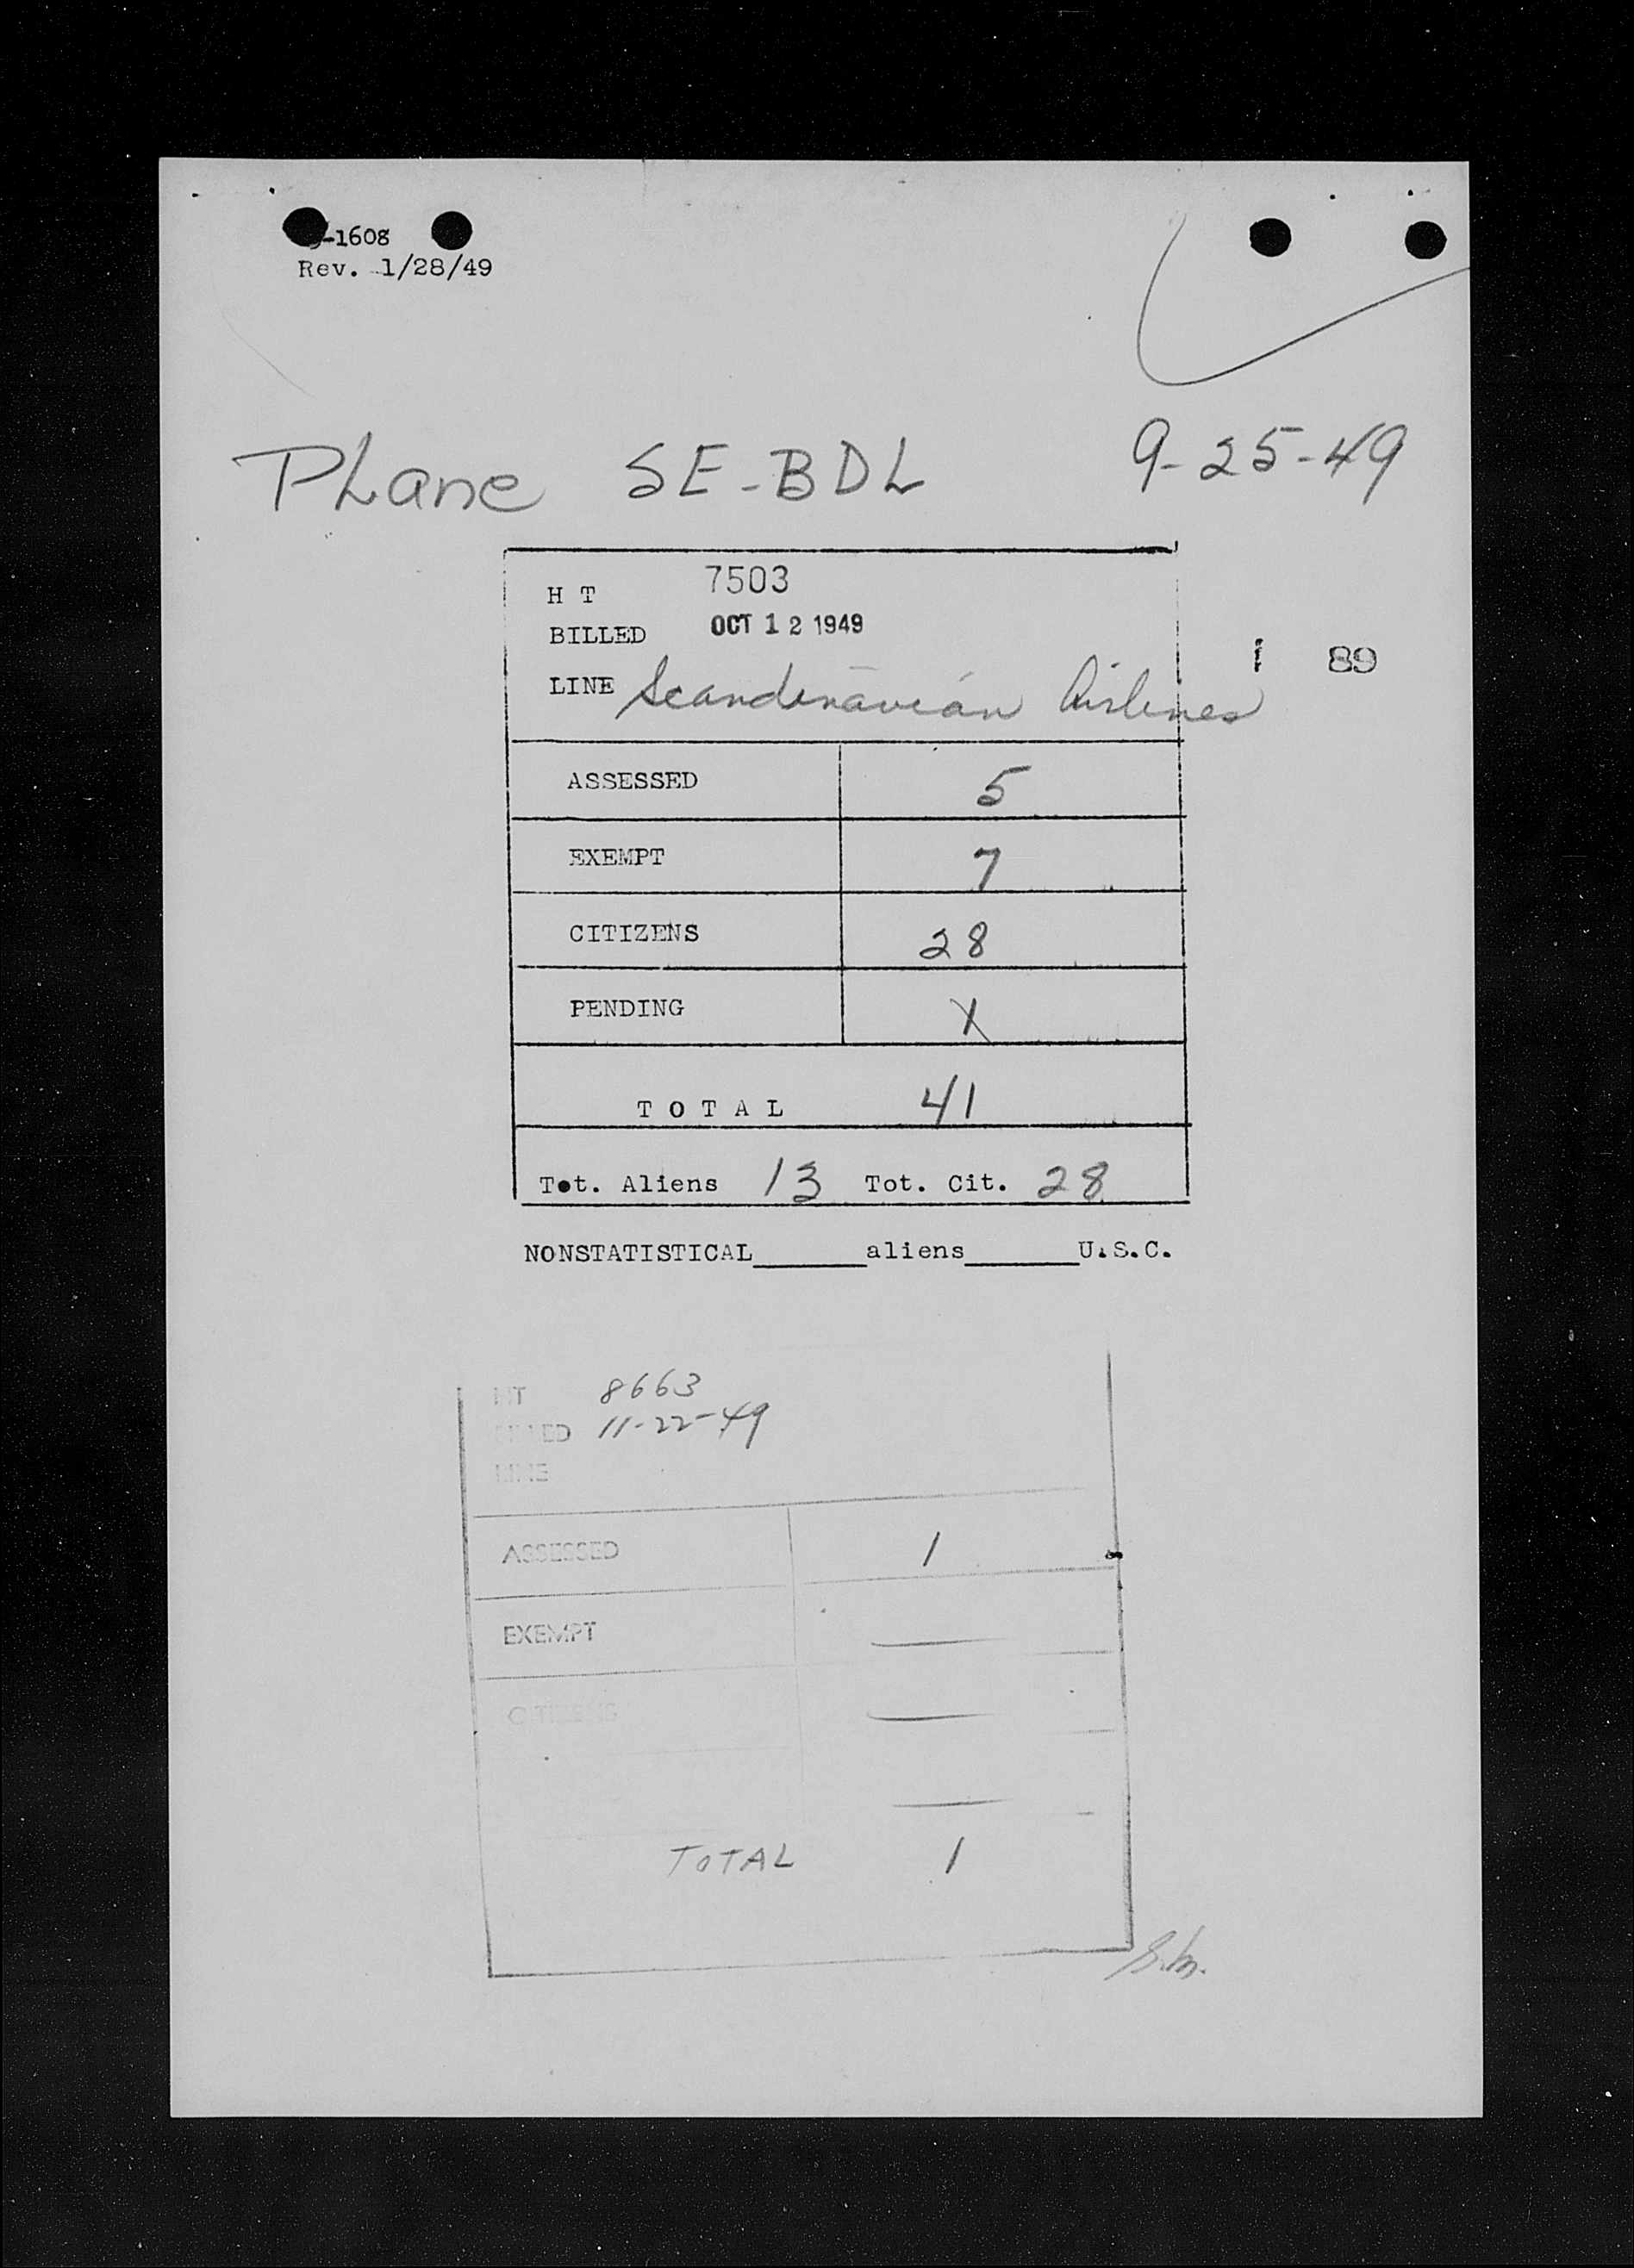 -1608
Rev. 1/28/49
PLane SE-BDL 9-25-49
H T 7503
BILLED OCT 12 1949
LINE Scandinavian Airlines
89
ASSESSED 5
EXEMPT 7
CITIZENS 28
PENDING X
TOTAL 41
Tot. Aliens 13 Tot. Cit. 28
NONSTATISTICAL______aliens______U.S.C.
HT 8663
BILLED 11-22-49
LINE
ASSESSED 1
EXEMPT —
CITIZENS —
—
TOTAL 1